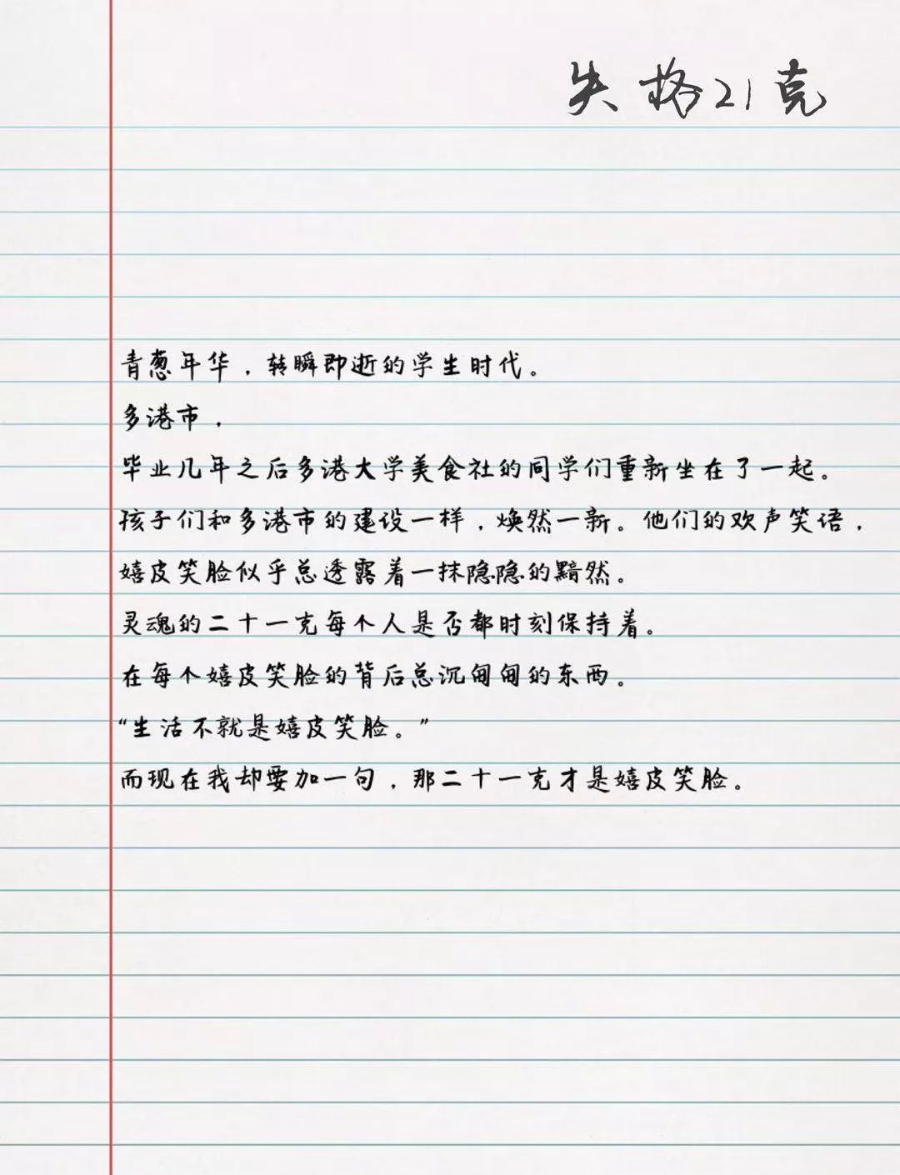 失格21克
青葱年华，转瞬即逝的学生时代。
多港市，
毕业几年之后多港大学美食社的同学们重新坐在了一起。
孩子们和多港市的建设一样，焕然一新。他们的欢声笑语，
嬉皮笑脸似乎总透露着一抹隐隐的黯然。
灵魂的二十一克每个人是否都时刻保持着。
在每个嬉皮笑脸的背后总沉甸甸的东西。
“生活不就是嬉皮笑脸。”
而现在我却要加一句，那二十一克才是嬉皮笑脸。